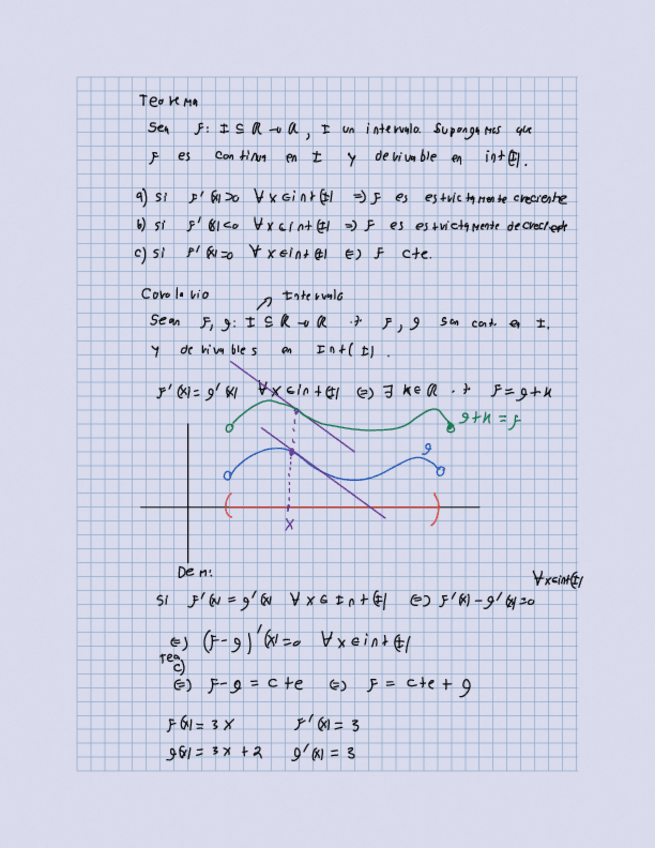 Teorema
Sea f: I ⊆ R → R, I un intervalo. Supongamos que
f es continua en I y derivable en int(I).
a) si f'(x)>0 ∀x∈int(I) => f es estrictamente creciente
b) si f'(x)<0 ∀x∈int(I) => f es estrictamente decreciente
c) si f'(x)=0 ∀x∈int(I) <=> f cte.
Corolario
Intervalo
Sean f, g: I ⊆ R → R .t. f, g son cont. en I.
y derivables en Int(I).
f'(x) = g'(x) ∀x∈int(I) <=> ∃ k∈R .t. f = g+k
g+k = f
g
x
Dem:
∀x∈int(I)
si f'(x) = g'(x) ∀x∈Int(I) <=> f'(x) - g'(x) = 0
<=> (f-g)'(x) = 0 ∀x∈int(I)
Teo
c)
<=> f-g = cte <=> f = cte + g
f(x) = 3x f'(x) = 3
g(x) = 3x + 2 g'(x) = 3